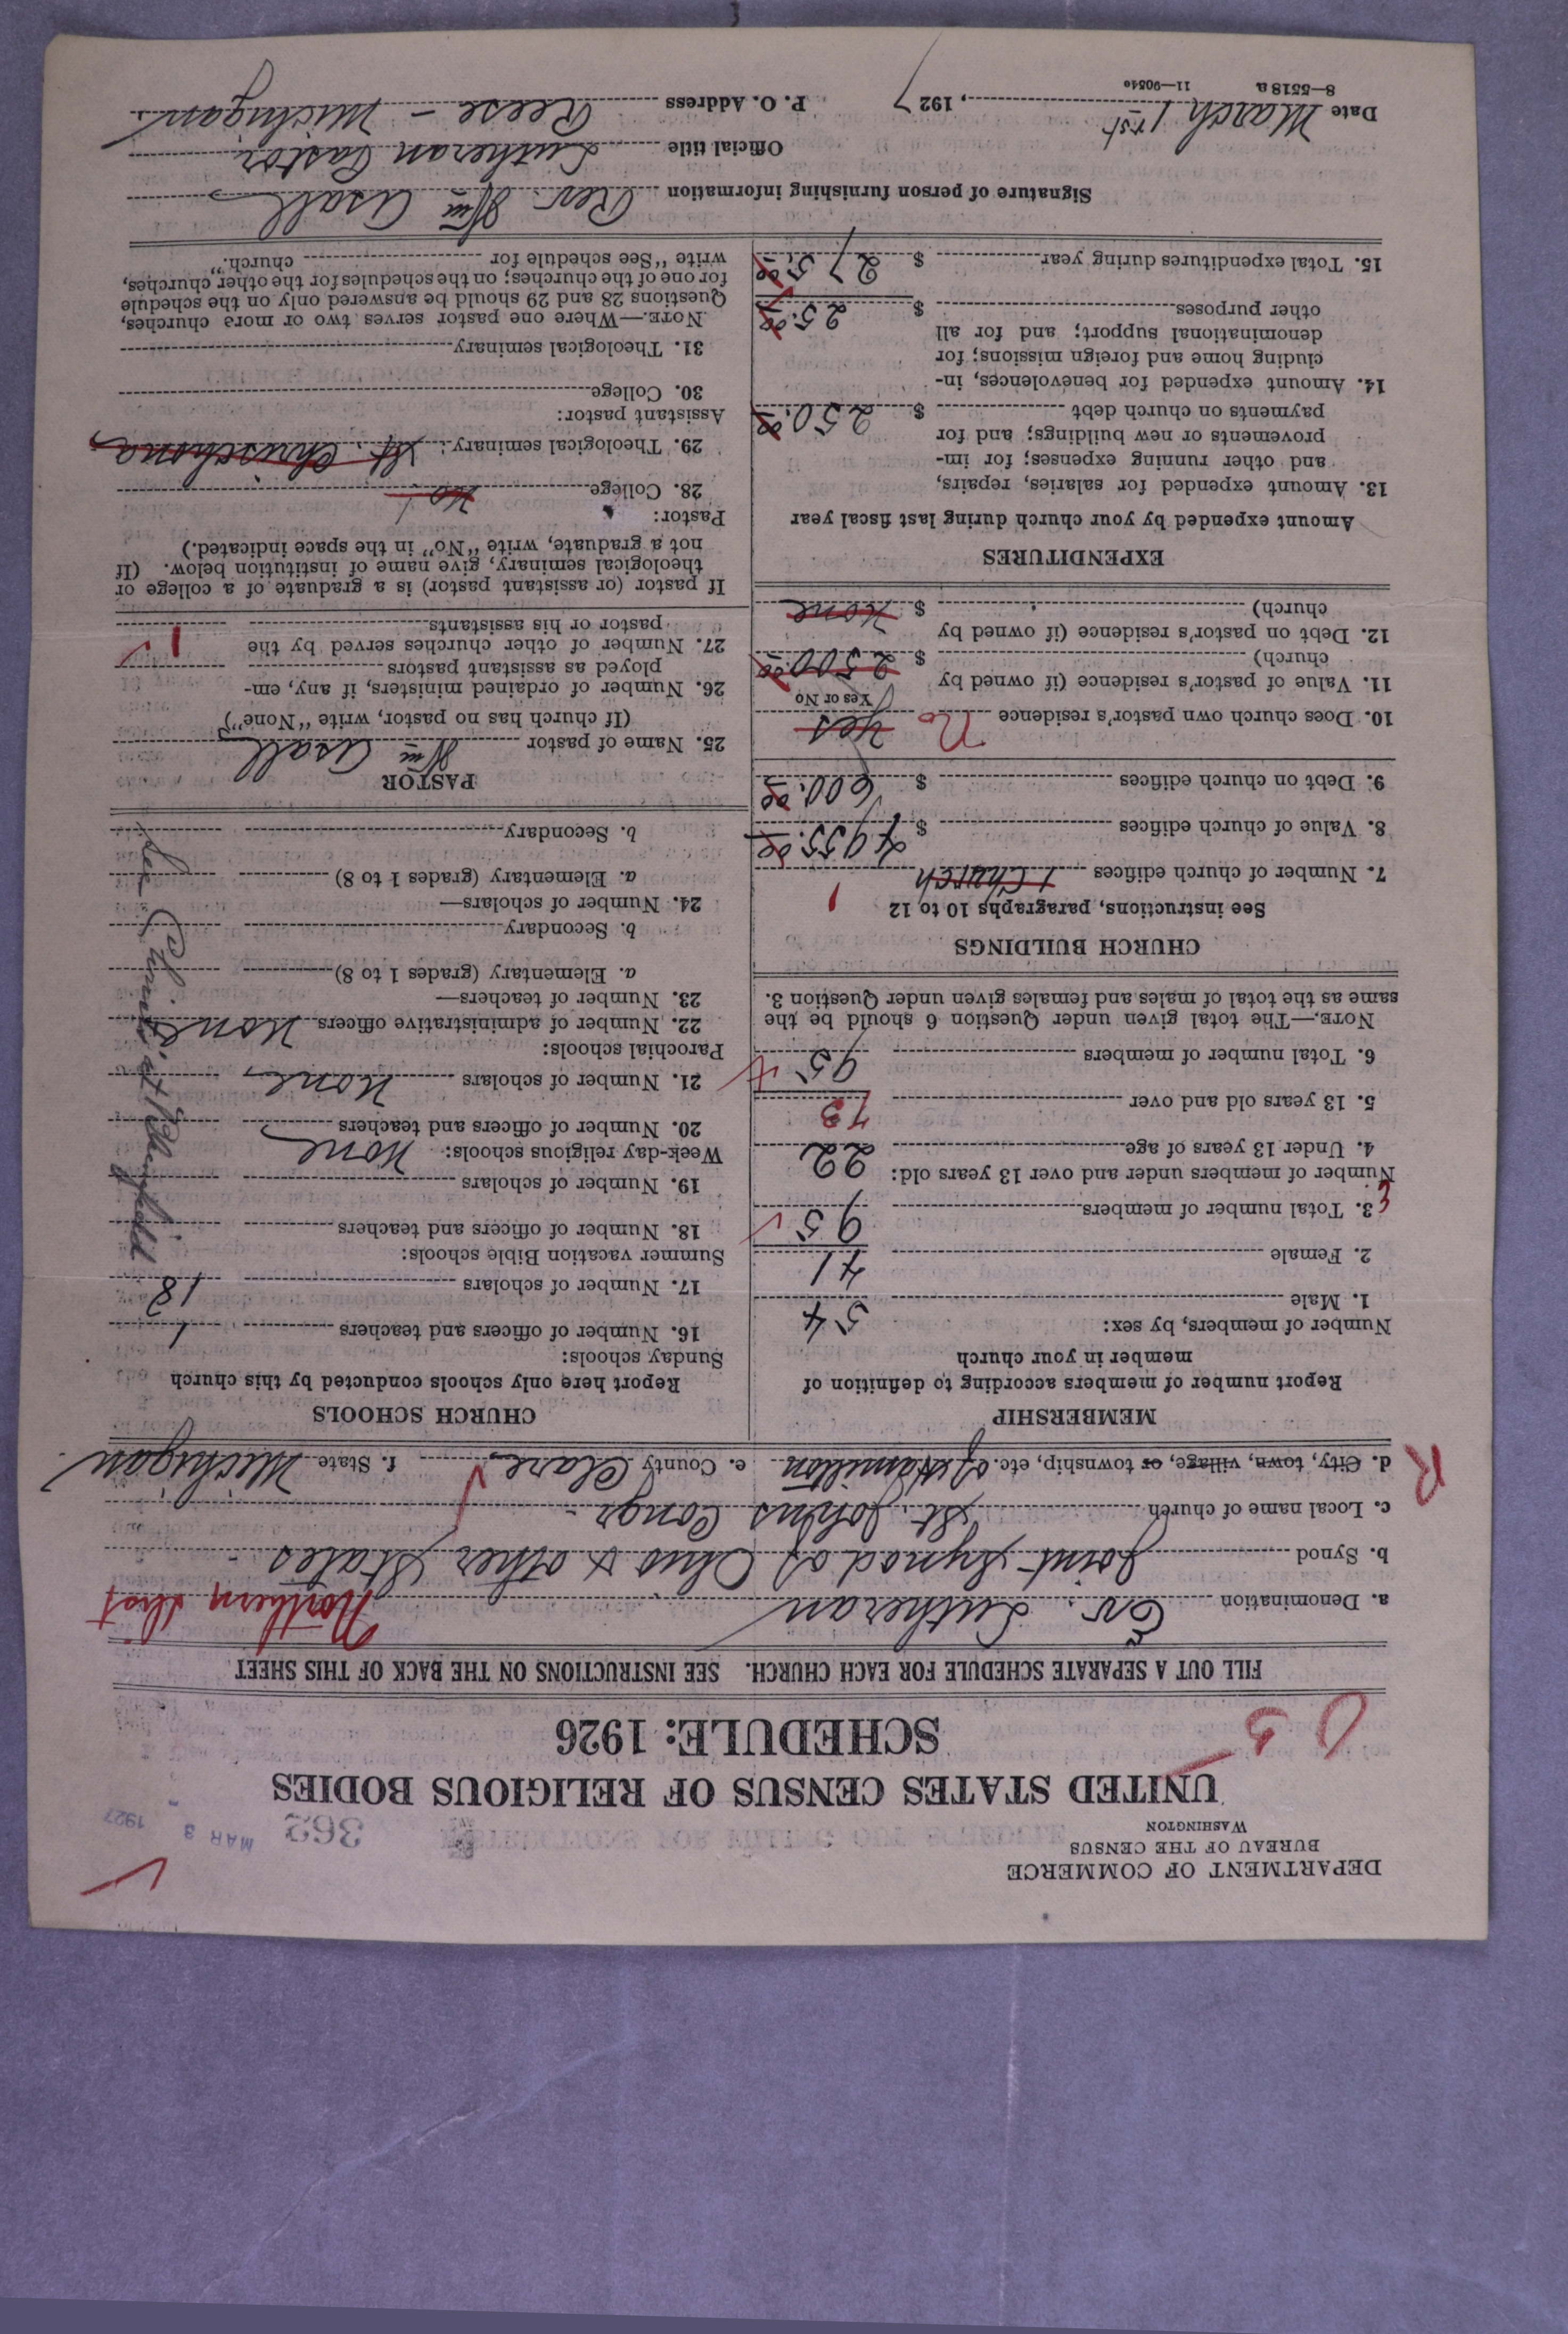 DEPARTMENT OF COMMERCE
BUREAU OF THE CENSUS
WASHINGTON
362
MAR 3 1927
UNITED STATES CENSUS OF RELIGIOUS BODIES
SCHEDULE: 1926
FILL OUT A SEPARATE SCHEDULE FOR EACH CHURCH. SEE INSTRUCTIONS ON THE BACK OF THIS SHEET
a. Denomination Ev. Lutheran Northern Dist
b. Synod Joint Synod of Ohio & other States
c. Local name of church St. Johns Congr.
R
d. City, town, village, or township, etc. of Hamilton e. County Clare f. State Michigan
MEMBERSHIP
Report number of members according to definition of
member in your church
Number of members, by sex:
1. Male 54
2. Female 41
3. Total number of members 95
Number of members under and over 13 years old:
4. Under 13 years of age 22
5. 13 years old and over 73
6. Total number of members 95
NOTE.—The total given under Question 6 should be the
same as the total of males and females given under Question 3.
CHURCH BUILDINGS
See instructions, paragraphs 10 to 12
1
7. Number of church edifices 1 Church
8. Value of church edifices $ 4955.00
9. Debt on church edifices $ 600.00
10. Does church own pastor's residence no yes
Yes or No
11. Value of pastor's residence (if owned by
church) $ 2500.00
12. Debt on pastor's residence (if owned by
church) $ none
EXPENDITURES
Amount expended by your church during last fiscal year
13. Amount expended for salaries, repairs,
and other running expenses; for im-
provements or new buildings; and for
payments on church debt $ 250.00
14. Amount expended for benevolences, in-
cluding home and foreign missions; for
denominational support; and for all
other purposes $ 25.00
15. Total expenditures during year $ 275.00
CHURCH SCHOOLS
Report here only schools conducted by this church
Sunday schools:
16. Number of officers and teachers 1
17. Number of scholars 18
Summer vacation Bible schools:
18. Number of officers and teachers
19. Number of scholars
Week-day religious schools: none
20. Number of officers and teachers
21. Number of scholars none
Parochial schools:
22. Number of administrative officers none
23. Number of teachers—
a. Elementary (grades 1 to 8)
b. Secondary
24. Number of scholars—
a. Elementary (grades 1 to 8)
b. Secondary
PASTOR
25. Name of pastor Wm Asall
(If church has no pastor, write "None")
26. Number of ordained ministers, if any, em-
ployed as assistant pastors
27. Number of other churches served by the
pastor or his assistants 1
If pastor (or assistant pastor) is a graduate of a college or
theological seminary, give name of institution below. (If
not a graduate, write "No" in the space indicated.)
Pastor:
28. College no
29. Theological seminary: St. Chrischona
Assistant pastor:
30. College
31. Theological seminary
NOTE.—Where one pastor serves two or more churches,
Questions 28 and 29 should be answered only on the schedule
for one of the churches; on the schedules for the other churches,
write "See schedule for church."
Signature of person furnishing information Rev. Wm Asall
Official title Lutheran Pastor
Date March 1rst, 1927 P. O. Address Reese - Michigan
8-5518 a 11-9051c